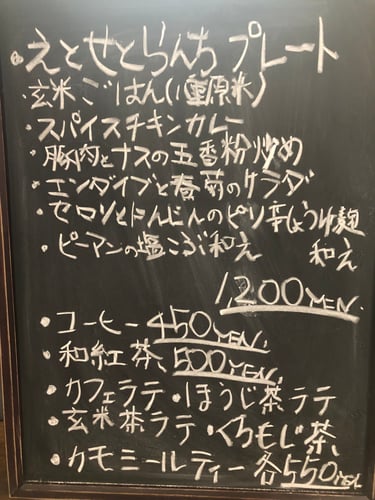 ・えとせとらんちプレート
・玄米ごはん(重原米)
・スパイスチキンカレー
・豚肉とナスの五香粉炒め
・エンダイブと春菊のサラダ
・セロリとにんじんのピリ辛しょうゆ麹
和え
・ピーマンの塩こぶ和え
1200YEN.
・コーヒー450YEN.
・和紅茶500YEN.
・カフェラテ・ほうじ茶ラテ
・玄米茶ラテ・くろもじ茶
・カモミールティー各550YEN